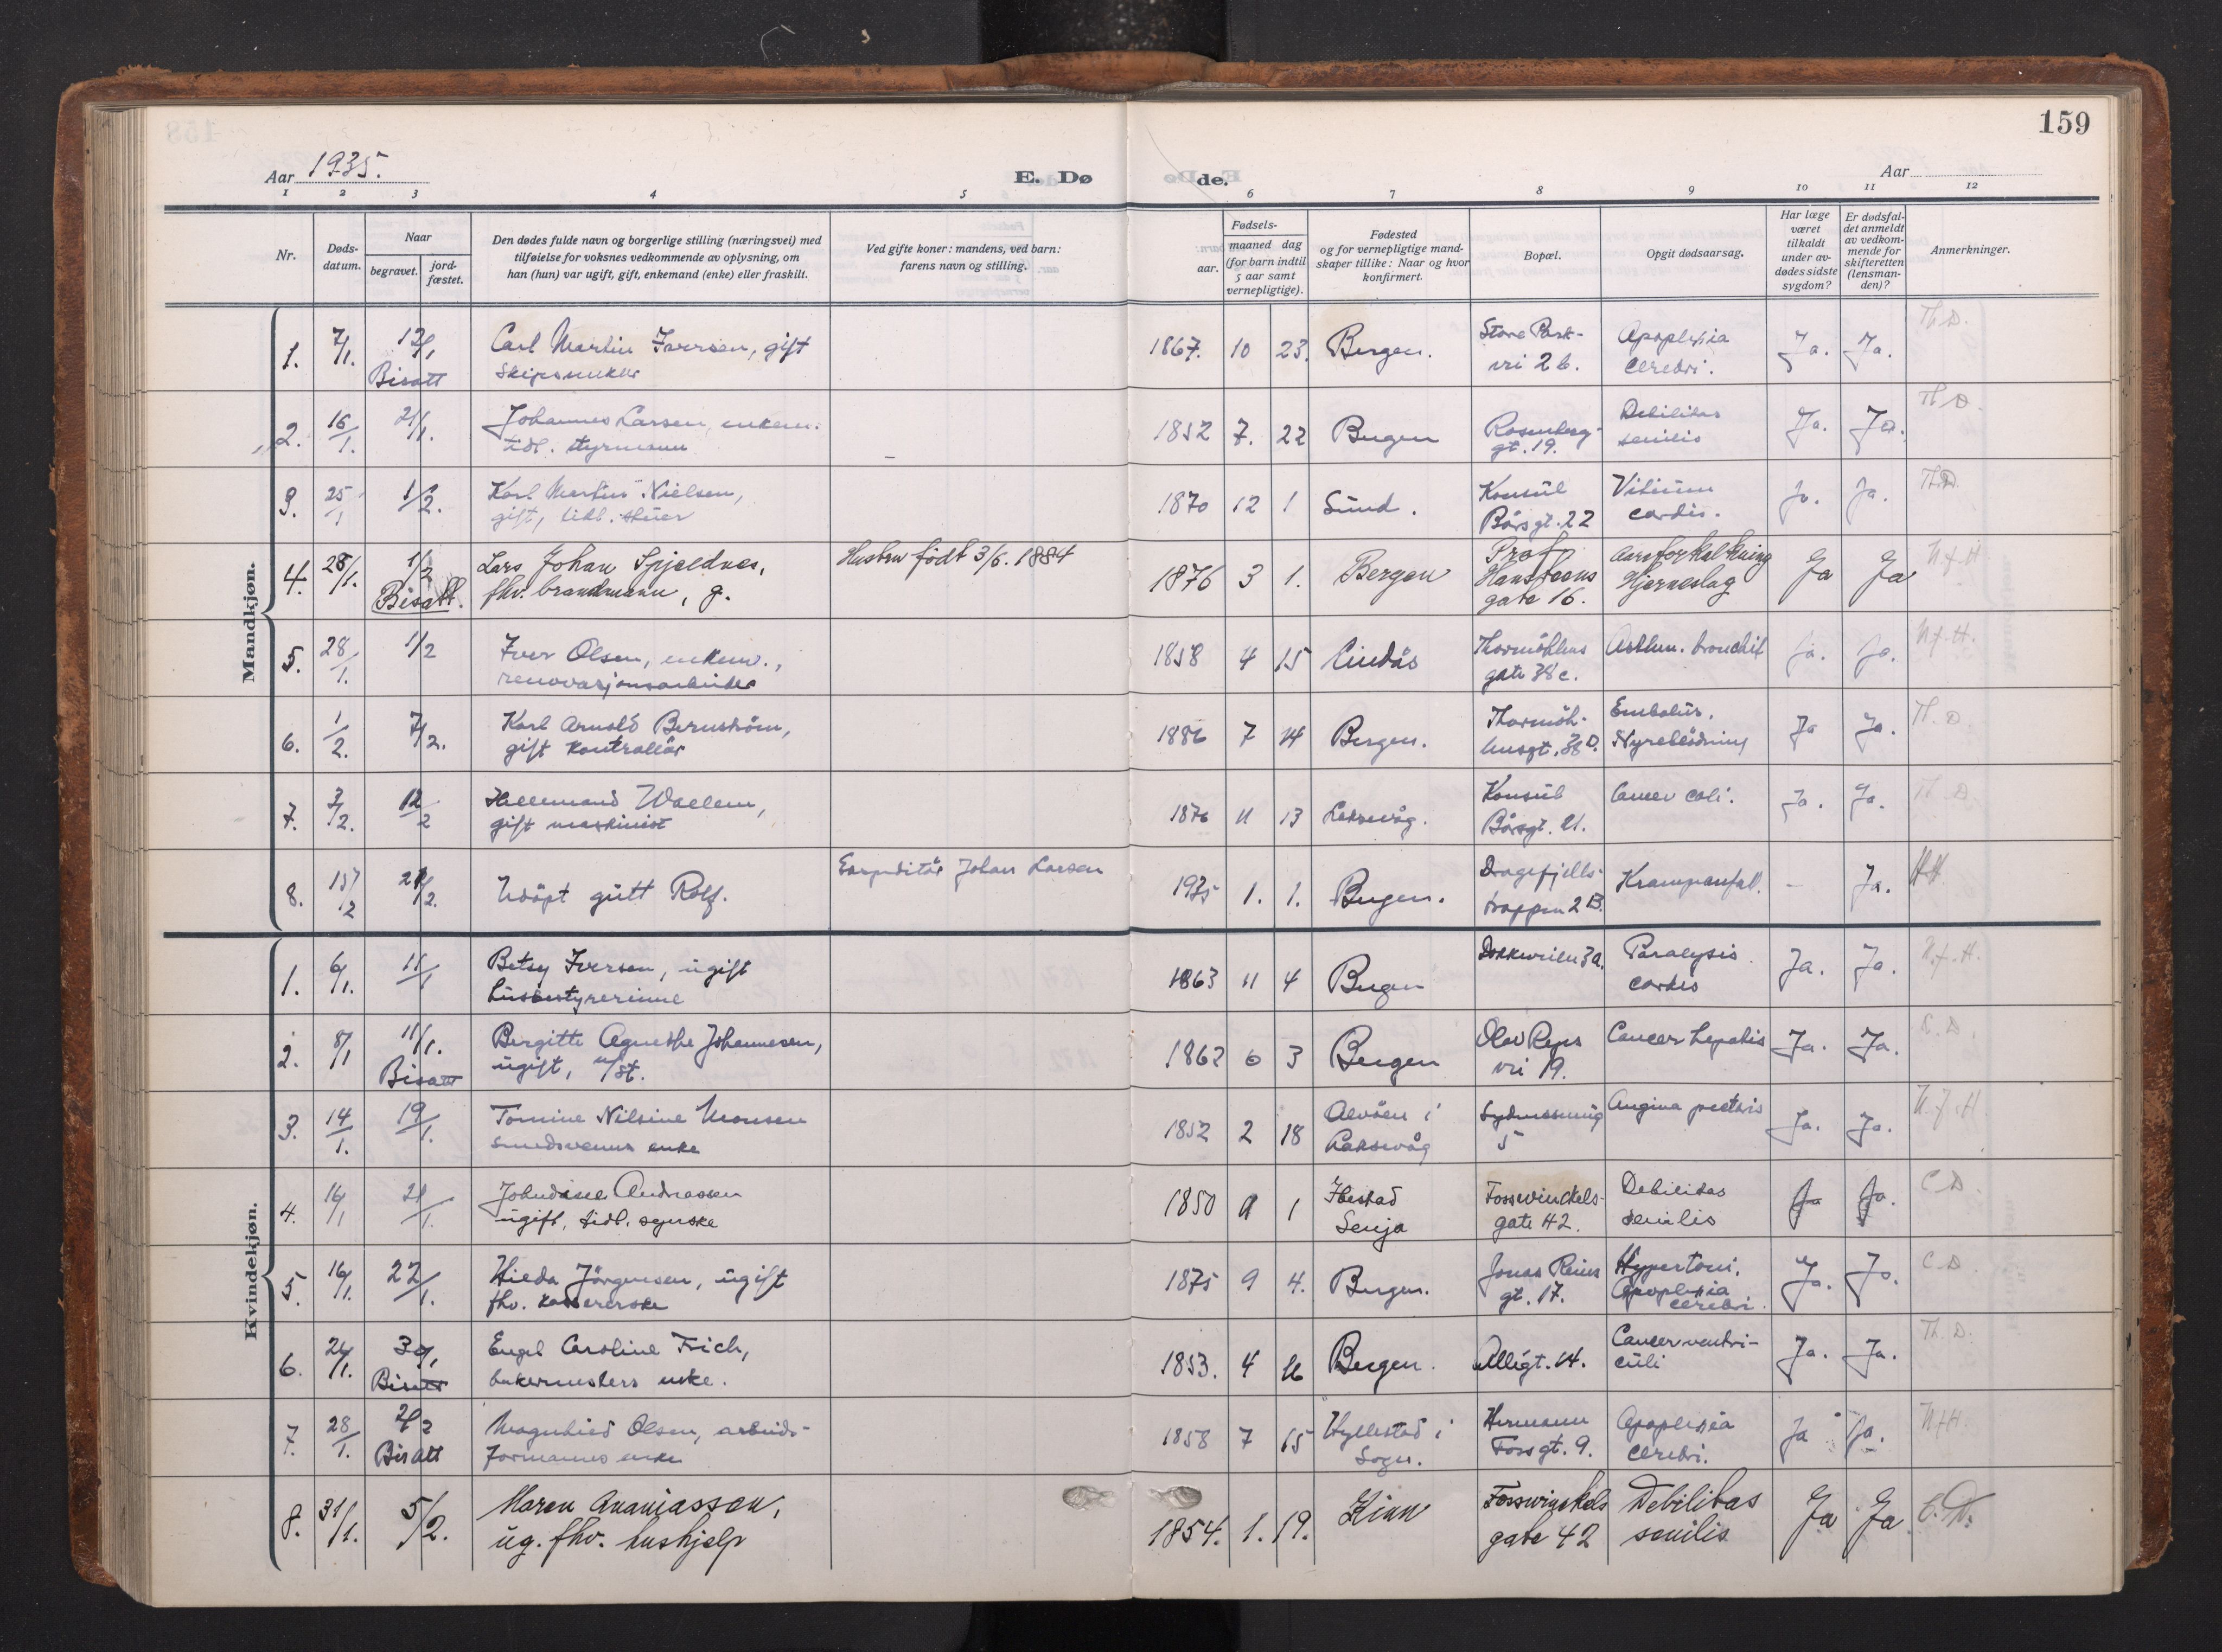 159
Aar 1935. E. Dø de. Aar
1 2 3 4 5 6 7 8 9 10 11 12
Nr.
Døds-
datum.
Naar
begravet.
jord-
fæstet.
Den dødes fulde navn og borgerlige stilling (næringsvei) med
tilføielse for voksnes vedkommende av oplysning, om
han (hun) var ugift, gift, enkemand (enke) eller fraskilt.
Ved gifte koner: mandens, ved barn:
farens navn og stilling.
Fødsels-
aar.
maaned dag
(for barn indtil
5 aar samt
vernepligtige).
Fødested
og for vernepligtige mand-
skaper tillike: Naar og hvor
konfirmert.
Bopæl.
Opgit dødsaarsag.
Har læge
været
tilkaldt
under av-
dødes sidste
sygdom?
Er dødsfal-
det anmeldt
av vedkom-
mende for
skifteretten
(lensman-
den)?
Anmerkninger.
Mandkjøn.
1. 7/1. 12/1 Carl Martin Iversen, gift 1867. 10 23. Bergen. Store Park- Apoplexia Ja. Ja. Th.D.
Bisatt vei 2b. cerebri.
2. 16/1. 21/1. Johannes Larsen, enkem. 1852 7. 22 Bergen Rosenberg- Debilitas Ja. Ja. Th D.
tidl. styrmann gt. 19. senilis
3. 25/1 1/2. Karl Martin Nielsen, 1870 12 1 Sund. Konsul Vitium Ja. Ja. Th.D.
gift, tidl. Børsgt. 22 cordis.
4. 28/1. 1/2 Lars Johan Spjeldnes, Hustru født 3/6. 1884 1876 3 1. Bergen Prof. Aareforkalkning Ja Ja N.f.H
Bisatt. fhv. brandmann, g. Hansteens Hjerneslag
gate 16.
5. 28/1. 1/2 Iver Olsen, enkem., 1858 4 15 Lindås Thormöhlens Asthm. bronchit Ja. Ja. N.f.H.
renovasjonsarbeider gate 38c.
6. 1/2. 7/2. Karl Arnold Bernström, 1886 7 14 Bergen. Thormöh- Embolus. Ja Ja. Th.D.
gift kontrollör lensgt. 38D. Nyreblödning
7. 3/2. 12/2 Waelem, 1876 11 13 Laksevåg. Konsul Cancer coli. Ja. Ja. Th D.
gift maskinist Børsgt. 21.
8. 15/2 21/2. Udöpt gutt Rolf. Expeditör Johan Larsen 1935 1. 1. Bergen. Dragefjells- Krampeanfal. - Ja. HH
trappen 2B.
Kvindekjøn.
1. 6/1. 11/1 Betsy Iversen, ugift 1863 11 4 Bergen Dokkeveien 3a. Paralysis Ja. Ja. N.f.H.
husbestyrerinne cordis
2. 8/1 11/1. Bergitte Agnethe Johannesen, 1862 6 3 Bergen Olav Ryes Cancer hepatis Ja. Ja. D.
Bisatt ugift, u/st. vei 19.
3. 14/1. 19/1. Tomine Nilsine Monsen 1852 2 18 Alvöen i Sydnessmug Angina pectoris Ja. Ja. N.f.H
smedsvenns enke Laksevåg 5
4. 16/1 21/1. Andreassen 1850 9 1 Ibestad Fosswinckels- Debilitas Ja Ja. C.D.
ugift, tidl. syerske Senja gate 42. senilis
5. 16/1. 22/1. Hilda Jörgensen, ugift 1875 9 4. Bergen. Jonas Reins Hypertoni. Ja. Ja. C.D.
fhv. kassererske gt. 17. Apoplexia
cerebri.
6. 24/1. 30/1 Engel Caroline Frich, 1853. 4 16 Bergen. Allégt. 14. Cancer ventri- Ja. Ja. Th.D.
Bisatt bakermesters enke. culi
7. 28/1. 2/2 Magnhild Olsen, arbeids- 1858 7 15 Hyllestad i Hermann Apoplexia Ja Ja. N.f.H.
Bisatt formanns enke Sogn. Fossgt. 9. cerebri.
8. 31/1. 5/2. Maren Ananiassen, 1854. 1. 19. Kinn Fosswinckels Debilitas Ja Ja C.D.
ug. fhv. hushjelp gate 42 senilis